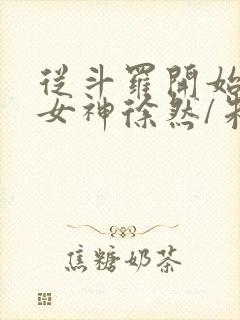 從斗羅開始
女神徐然/
焦糖奶茶